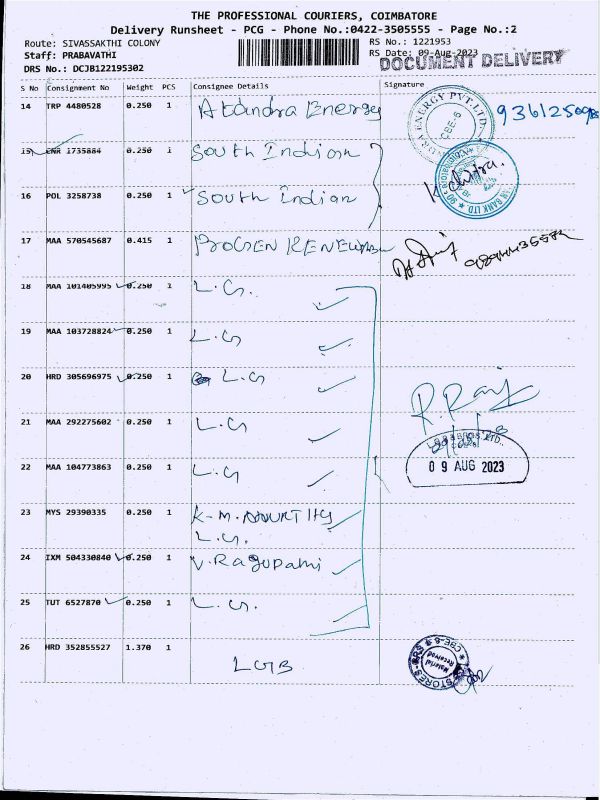 THE PROFESSIONAL COURIERS, COIMBATORE
Delivery Runsheet - PCG - Phone No.:0422-3505555 - Page No.:2
Route: SIVASSAKTHI COLONY
RS No.: 1221953
Staff: PRABAVATHI
RS Date: 09-Aug-2023
DRS No.: DCJB122195302
DOCUMENT DELIVERY
S No Consignment No Weight PCS Consignee Details Signature
14 TRP 4480528 0.250 1 Energy
ENERGY PVT.LTD
CBE-6
15 ENR 1735884 0.250 1 South Indian
16 POL 3258738 0.250 1 South Indian
BANK LTD
17 MAA 570545687 0.415 1
18 MAA 101405995 0.250 1 L.G.
19 MAA 103728824 0.250 1 L.G
20 HRD 305696975 0.250 1 L.G
R.Raj
21 MAA 292275602 0.250 1 L.G
09 AUG 2023
22 MAA 104773863 0.250 1 L.G
23 MYS 29390335 0.250 1 K-M.
L.G.
24 IXM 504330840 0.250 1 V.Ragupathi
25 TUT 6527870 0.250 1 L.G.
26 HRD 352855527 1.370 1 LGB
CBE-6
Material
Received
STORES